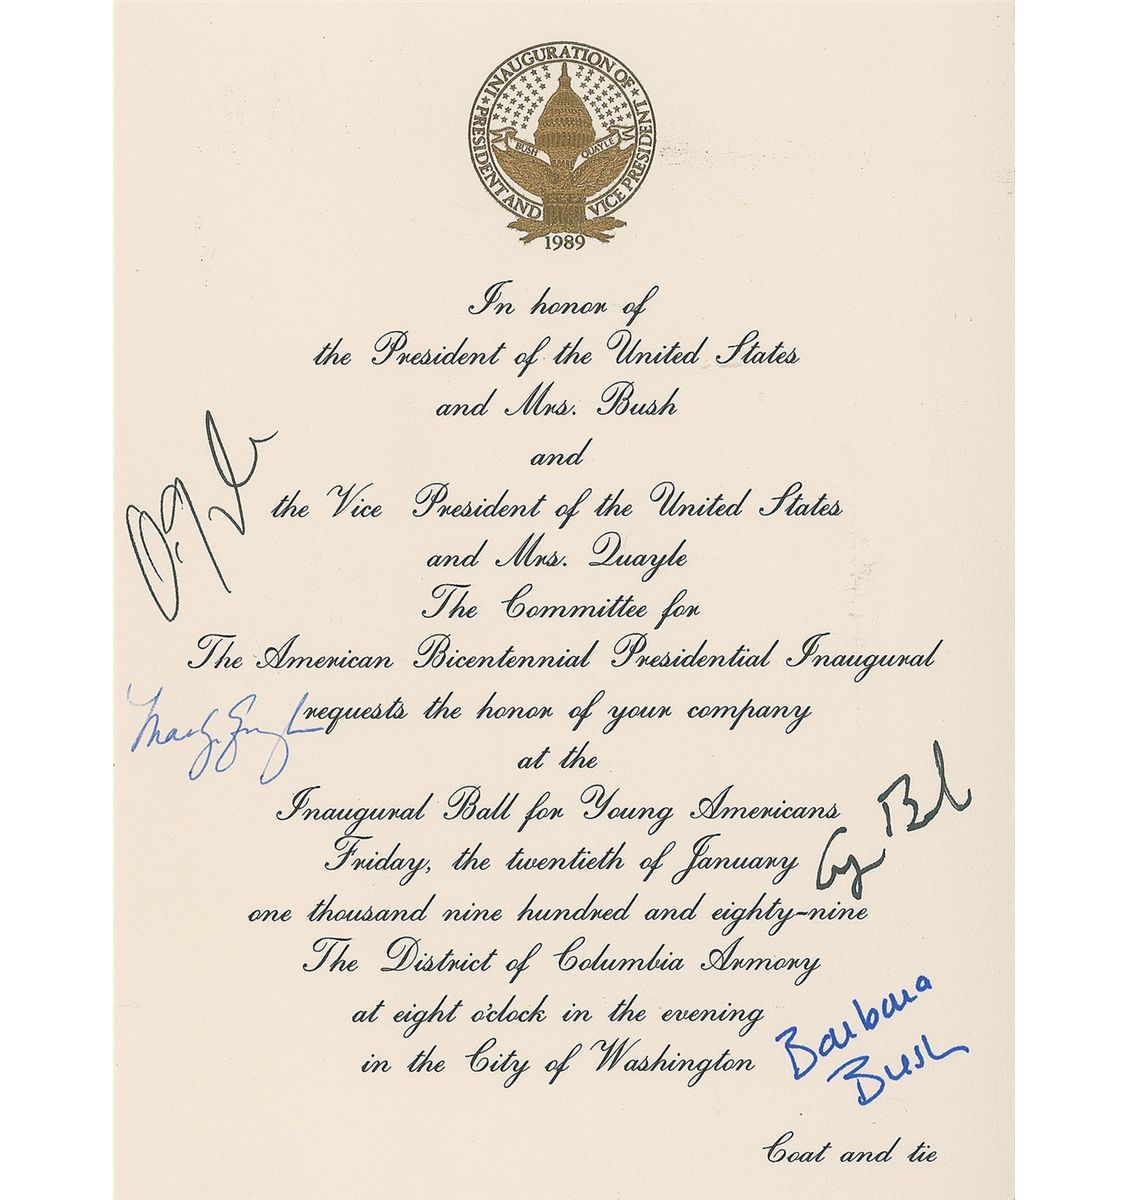 INAUGURATION OF
PRESIDENT AND
VICE PRESIDENT
BUSH
QUAYLE
1989
In honor of
the President of the United States
and Mrs. Bush
and
the Vice President of the United States
and Mrs. Quayle
The Committee for
The American Bicentennial Presidential Inaugural
requests the honor of your company
at the
Inaugural Ball for Young Americans
Friday, the twentieth of January
one thousand nine hundred and eighty-nine
The District of Columbia Armory
at eight o'clock in the evening
in the City of Washington
Barbara
Bush
Coat and tie